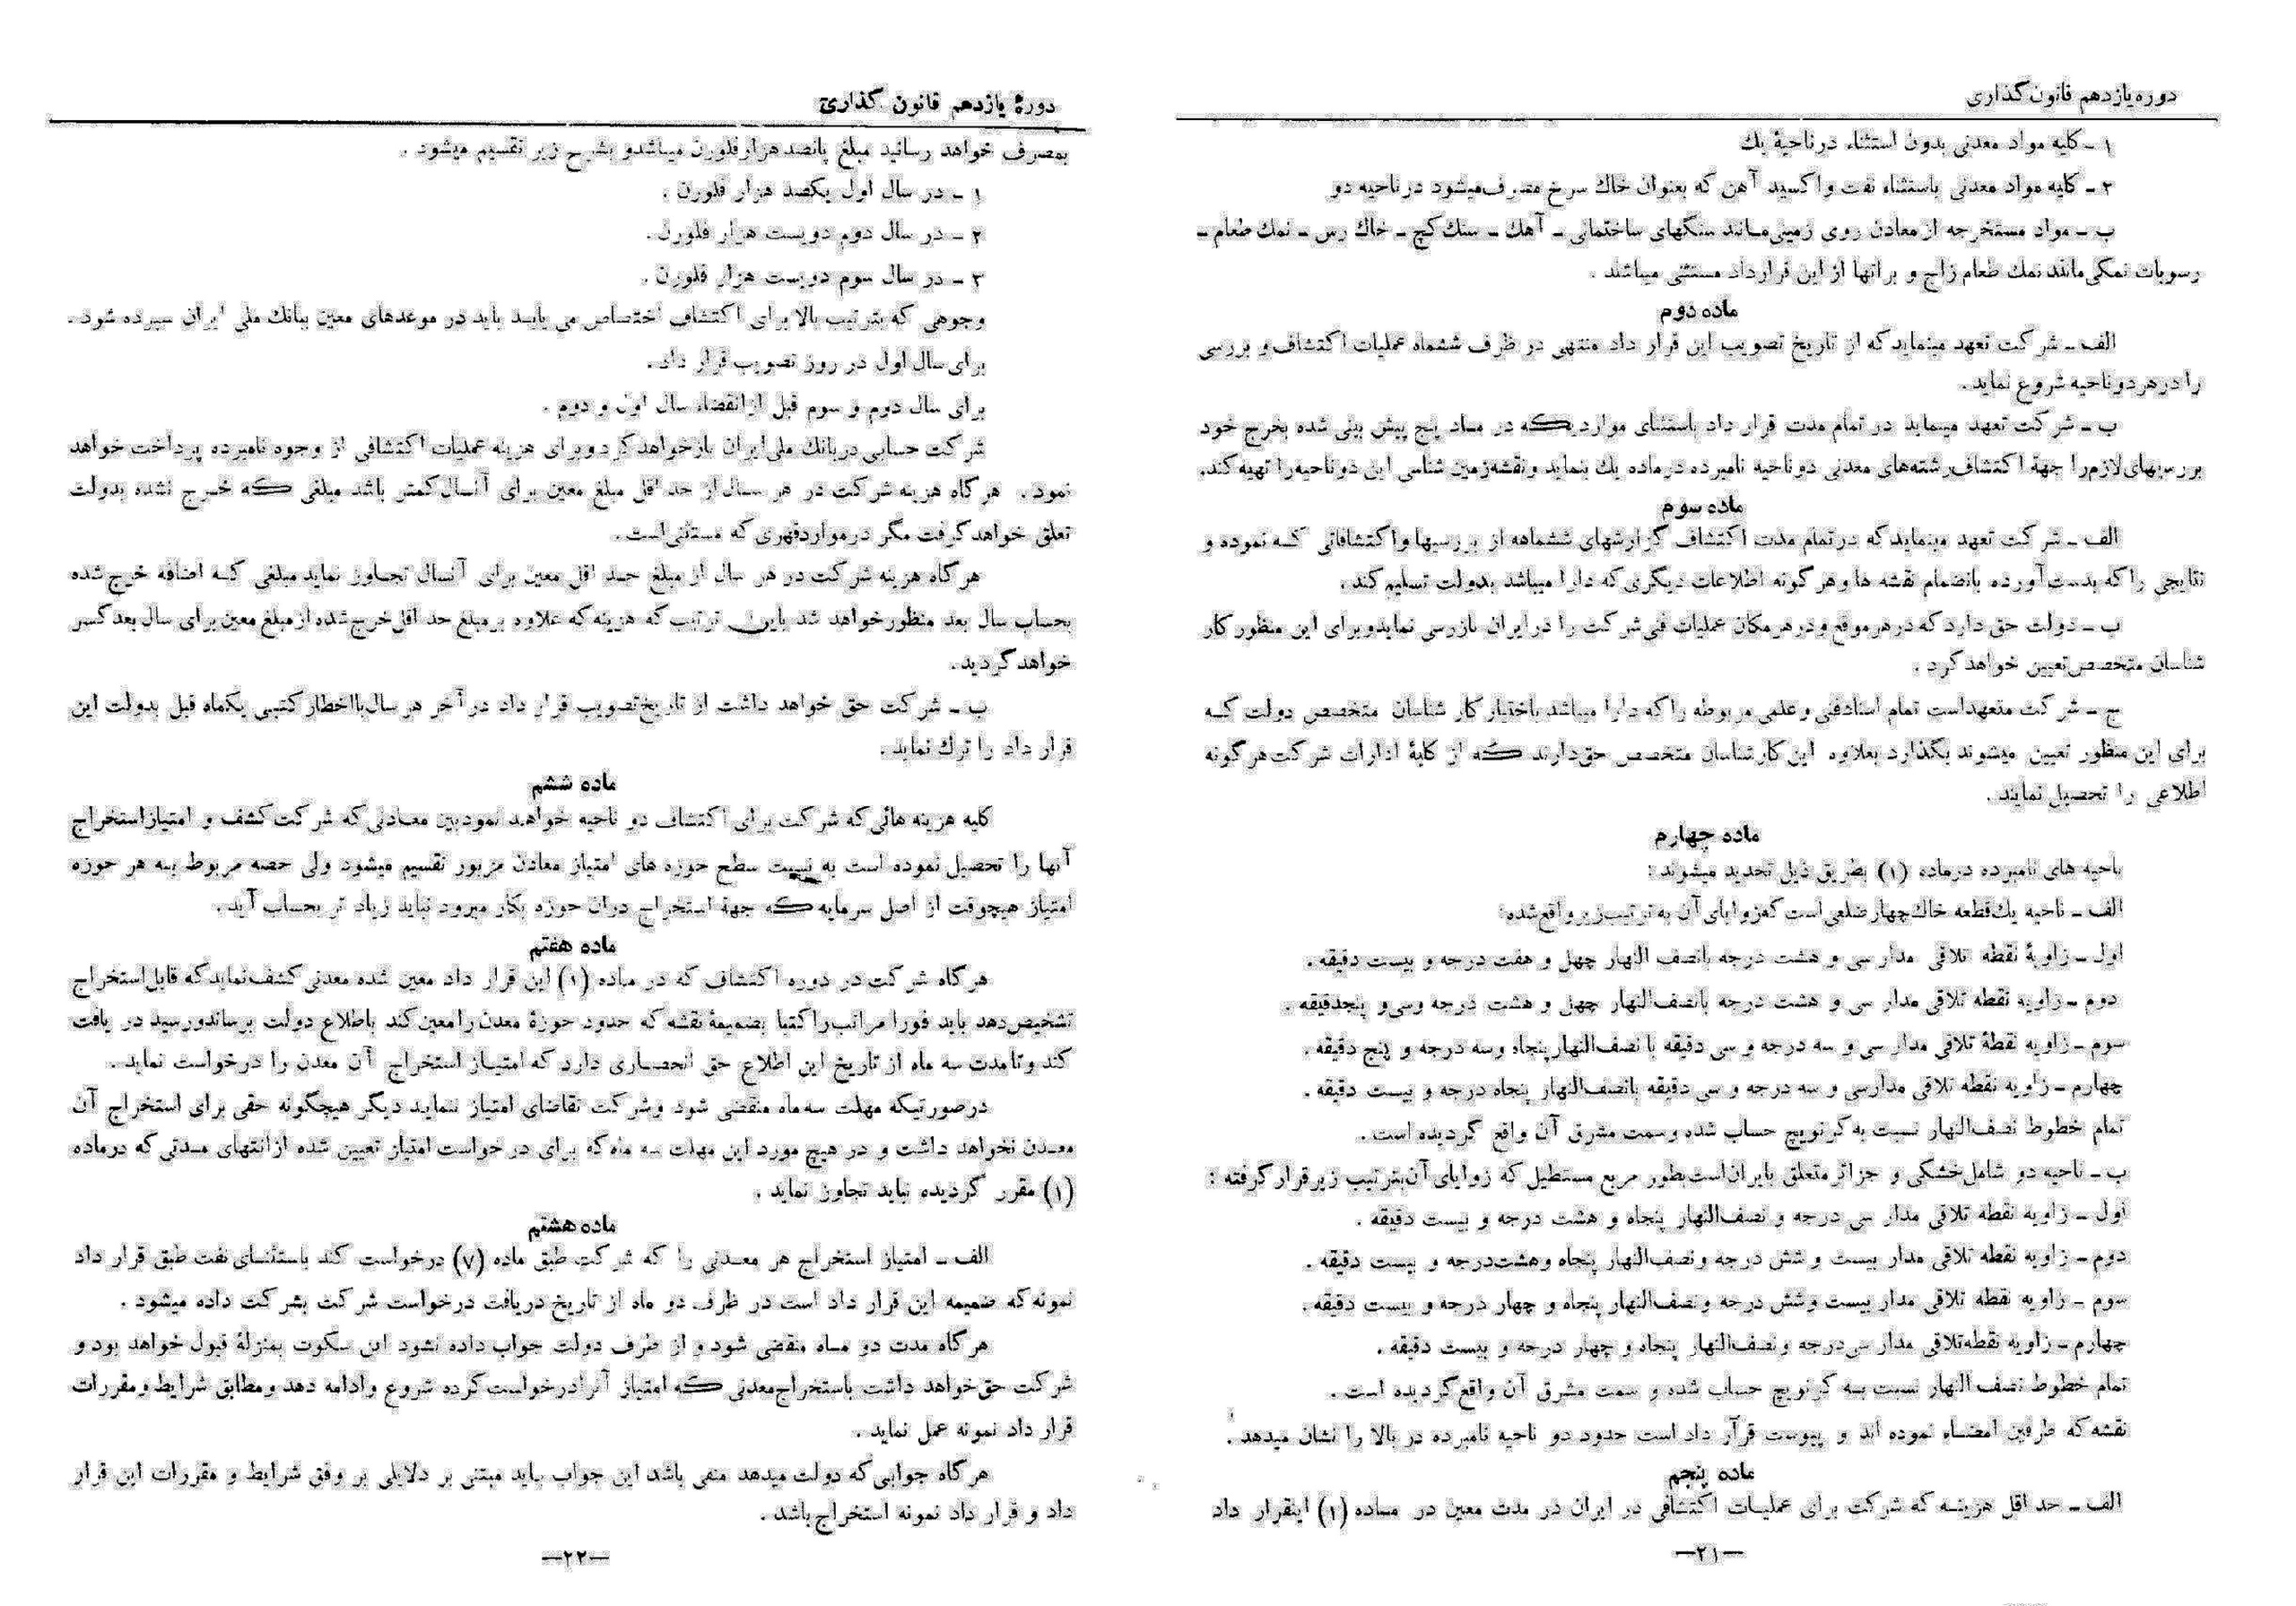 دوره یازدهم قانون گذاری
۱ ـ کلیه مواد معدنی بدون استثناء در ناحیهٔ یك
۲ ـ کلیه مواد معدنی باستثناء نفت و اکسید آهن که بعنوان خاك سرخ مصرف میشود در ناحیه دو
ب ـ مواد مستخرجه از معادن روی زمینی مانند سنگهای ساختمانی ـ آهك ـ سنك گچ ـ خاك رس ـ نمك طعام ـ
رسوبات نمکی مانند نمك طعام زاج و براتها از این قرارداد مستثنی میباشند .
ماده دوم
الف ـ شرکت تعهد مینماید که از تاریخ تصویب این قرار داد منتهی در ظرف ششماه عملیات اکتشاف و بررسی
را در هر دو ناحیه شروع نماید.
ب ـ شرکت تعهد مینماید در تمام مدت قرار داد باستثنای مواردیکه در ماد پنج پیش بینی شده بخرج خود
بررسیهای لازم را جهة اکتشاف رشته‌های معدنی دو ناحیه نامبرده در ماده یك بنماید و نقشه زمین شناسی این دو ناحیه را تهیه کند.
ماده سوم
الف ـ شرکت تعهد مینماید که در تمام مدت اکتشاف گزارشهای ششماهه از بررسیها و اکتشافاتی کـه نموده و
نتایجی را که بدست آورده بانضمام نقشه ها و هر گونه اطلاعات دیگری که دارا میباشد بدولت تسلیم کند .
ب ـ دولت حق دارد که در هر موقع و در هر مکان عملیات فنی شرکت را در ایران بازرسی نماید و برای این منظور کار
شناسان متخصص تعیین خواهد کرد .
ج ـ شرکت متعهد است تمام اسناد فنی و علمی مربوطه را که دارا میباشد باختیار کار شناسان متخصص دولت کـه
برای این منظور تعیین میشوند بگذارد بعلاوه این کارشناسان متخصص حق دارند که از کلیهٔ ادارات شرکت هر گونه
اطلاعی را تحصیل نمایند .
ماده چهارم
ناحیه های نامبرده در ماده (۱) بطریق ذیل تحدید میشوند :
الف ـ ناحیه یك قطعه خاك چهار ضلعی است که زوایای آن به ترتیب زیر واقع شده:
اول ـ زاویهٔ نقطه تلاقی مدار سی و هشت درجه بانصف النهار چهل و هفت درجه و بیست دقیقه .
دوم ـ زاویه نقطه تلاقی مدار سی و هشت درجه بانصف النهار چهل و هشت درجه وسی و پنجدقیقه .
سوم ـ زاویه نقطهٔ تلاقی مدار سی و سه درجه و سی دقیقه با نصف النهار پنجاه و سه درجه و پنج دقیقه .
چهارم ـ زاویه نقطه تلاقی مدار سی و سه درجه و سی دقیقه بانصف النهار پنجاه درجه و بیست دقیقه .
تمام خطوط نصف النهار نسبت به گرنویچ حساب شده و سمت مشرق آن واقع گردیده است .
ب ـ ناحیه دو شامل خشکی و جزائر متعلق بایران است بطور مربع مستطیل که زوایای آن بترتیب زیر قرار گرفته :
اول ـ زاویه نقطه تلاقی مدار سی درجه و نصف النهار پنجاه و هشت درجه و بیست دقیقه .
دوم ـ زاویه نقطه تلاقی مدار بیست و شش درجه و نصف النهار پنجاه و هشت درجه و بیست دقیقه .
سوم ـ زاویه نقطه تلاقی مدار بیست و شش درجه و نصف النهار پنجاه و چهار درجه و بیست دقیقه .
چهارم ـ زاویه نقطه تلاقی مدار سی درجه و نصف النهار پنجاه و چهار درجه و بیست دقیقه .
تمام خطوط نصف النهار نسبت بـه گرنویچ حساب شده و سمت مشرق آن واقع گردیده است .
نقشه که طرفین امضـاء نموده اند و پیوست قرار داد است حدود دو ناحیه نامبرده در بالا را نشان میدهد .
ماده پنجم
الف ـ حد اقل هزینـه که شرکت برای عملیـات اکتشافی در ایران در مدت معین در مـاده (۱) اینقرار داد
—۲۱—
دورهٔ یازدهم قانون گذاری
بمصرف خواهد رسانید مبلغ پانصد هزار فلورن میباشد و بشرح زیر تقسیم میشود .
۱ ـ در سال اول یکصد هزار فلورن .
۲ ـ در سال دوم دویست هزار فلورن .
۳ ـ در سال سوم دویست هزار فلورن .
وجوهی که بترتیب بالا برای اکتشاف اختصاص می یابـد باید در موعدهای معین ببانك ملی ایران سپرده شود .
برای سال اول در روز تصویب قرار داد .
برای سال دوم و سوم قبل از انقضاء سال اول و دوم .
شرکت حسابی در بانك ملی ایران باز خواهد کرد و برای هزینه عملیات اکتشافی از وجوه نامبرده پرداخت خواهد
نمود . هر گاه هزینه شرکت در هر سـال از حد اقل مبلغ معین برای آنسال کمتر باشد مبلغی که خـرج نشده بدولت
تعلق خواهد گرفت مگر در موارد قهری که مستثنی است .
هر گاه هزینه شرکت در هر سال از مبلغ حـد اقل معین برای آنسال تجـاوز نماید مبلغی کـه اضافه خرج شده
بحساب سال بعد منظور خواهد شد باین ترتیب که هزینه که علاوه بر مبلغ حد اقل خرج شده از مبلغ معین برای سال بعد کسر
خواهد گردید.
ب ـ شرکت حق خواهد داشت از تاریخ تصویب قرار داد در آخر هر سال با اخطار کتبی یکماه قبل بدولت این
قرار داد را ترك نماید .
ماده ششم
کلیه هزینه هائی که شرکت برای اکتشاف دو ناحیه خواهـد نمود بین معـادنی که شرکت کشف و امتیاز استخراج
آنها را تحصیل نموده است به نسبت سطح حوزه های امتیاز معادن مزبور تقسیم میشود ولی حصه مربوط بـه هر حوزه
امتیاز هیچوقت از اصل سرمایه که جهة استخراج در آن حوزه بکار میرود نباید زیاد تر بحساب آید .
ماده هفتم
هر گاه شرکت در دوره اکتشاف که در مـاده (۱) این قرار داد معین شده معدنی کشف نماید که قابل استخراج
تشخیص دهد باید فورا مراتب را کتبا بضمیمهٔ نقشه که حدود حوزهٔ معدن را معین کند باطلاع دولت برساند و رسید در یافت
کند و تا مدت سه ماه از تاریخ این اطلاع حق انحصـاری دارد که امتیـاز استخراج آن معدن را درخواست نماید .
در صورتیکه مهلت سه ماه منقضی شود و شرکت تقاضای امتیاز ننماید دیگر هیچگونه حقی برای استخراج آن
معـدن نخواهد داشت و در هیچ مورد این مهلت سه ماه که برای در خواست امتیاز تعیین شده از انتهای مـدتی که در ماده
(۱) مقرر گردیده نباید تجاوز نماید .
ماده هشتم
الف ـ امتیاز استخراج هر معـدنی را که شرکت طبق ماده (۷) درخواست کند باستثنـای نفت طبق قرار داد
نمونه که ضمیمه این قرار داد است در ظرف دو ماه از تاریخ دریافت درخواست شرکت بشرکت داده میشود .
هر گاه مدت دو مـاه منقضی شود و از طرف دولت جواب داده نشود این سکوت بمنزلهٔ قبول خواهد بود و
شرکت حق خواهد داشت باستخراج معدنی که امتیاز آنرا درخواست کرده شروع و ادامه دهد و مطابق شرایط و مقررات
قرار داد نمونه عمل نماید .
هر گاه جوابی که دولت میدهد منفی باشد این جواب باید مبتنی بر دلایلی بر وفق شرایط و مقررات این قرار
داد و قرار داد نمونه استخراج باشد .
—۲۲—